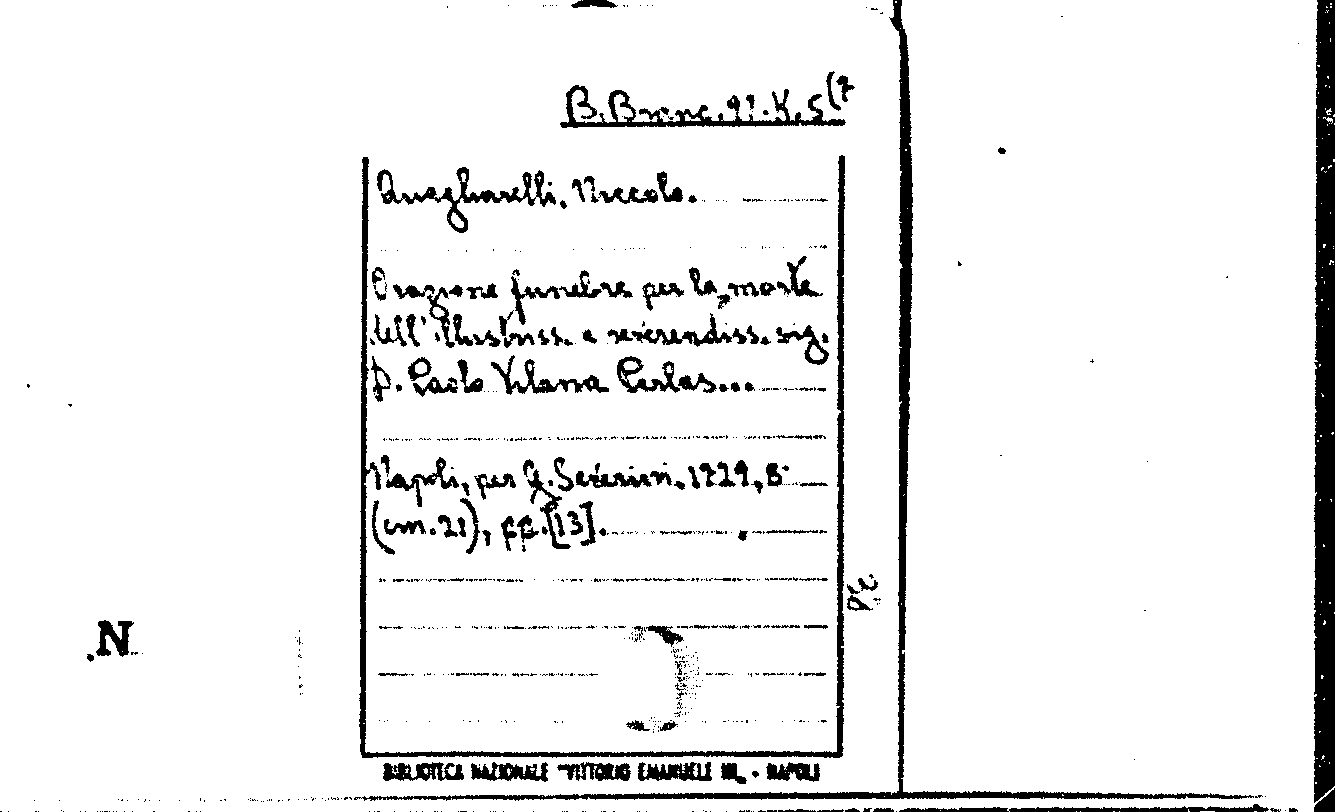 B. Branc. 91. K. 5 (7
Quagliarelli, Niccolo.
Orazione funebre per la morte
dell'illustriss. e reverendiss. sig.
D. Paolo Vilana Perlas...
Napoli, per G. Severini, 1729, 8°
(cm. 21), pp. [13].
N
BIBLIOTECA NAZIONALE "VITTORIO EMANUELE III" - NAPOLI